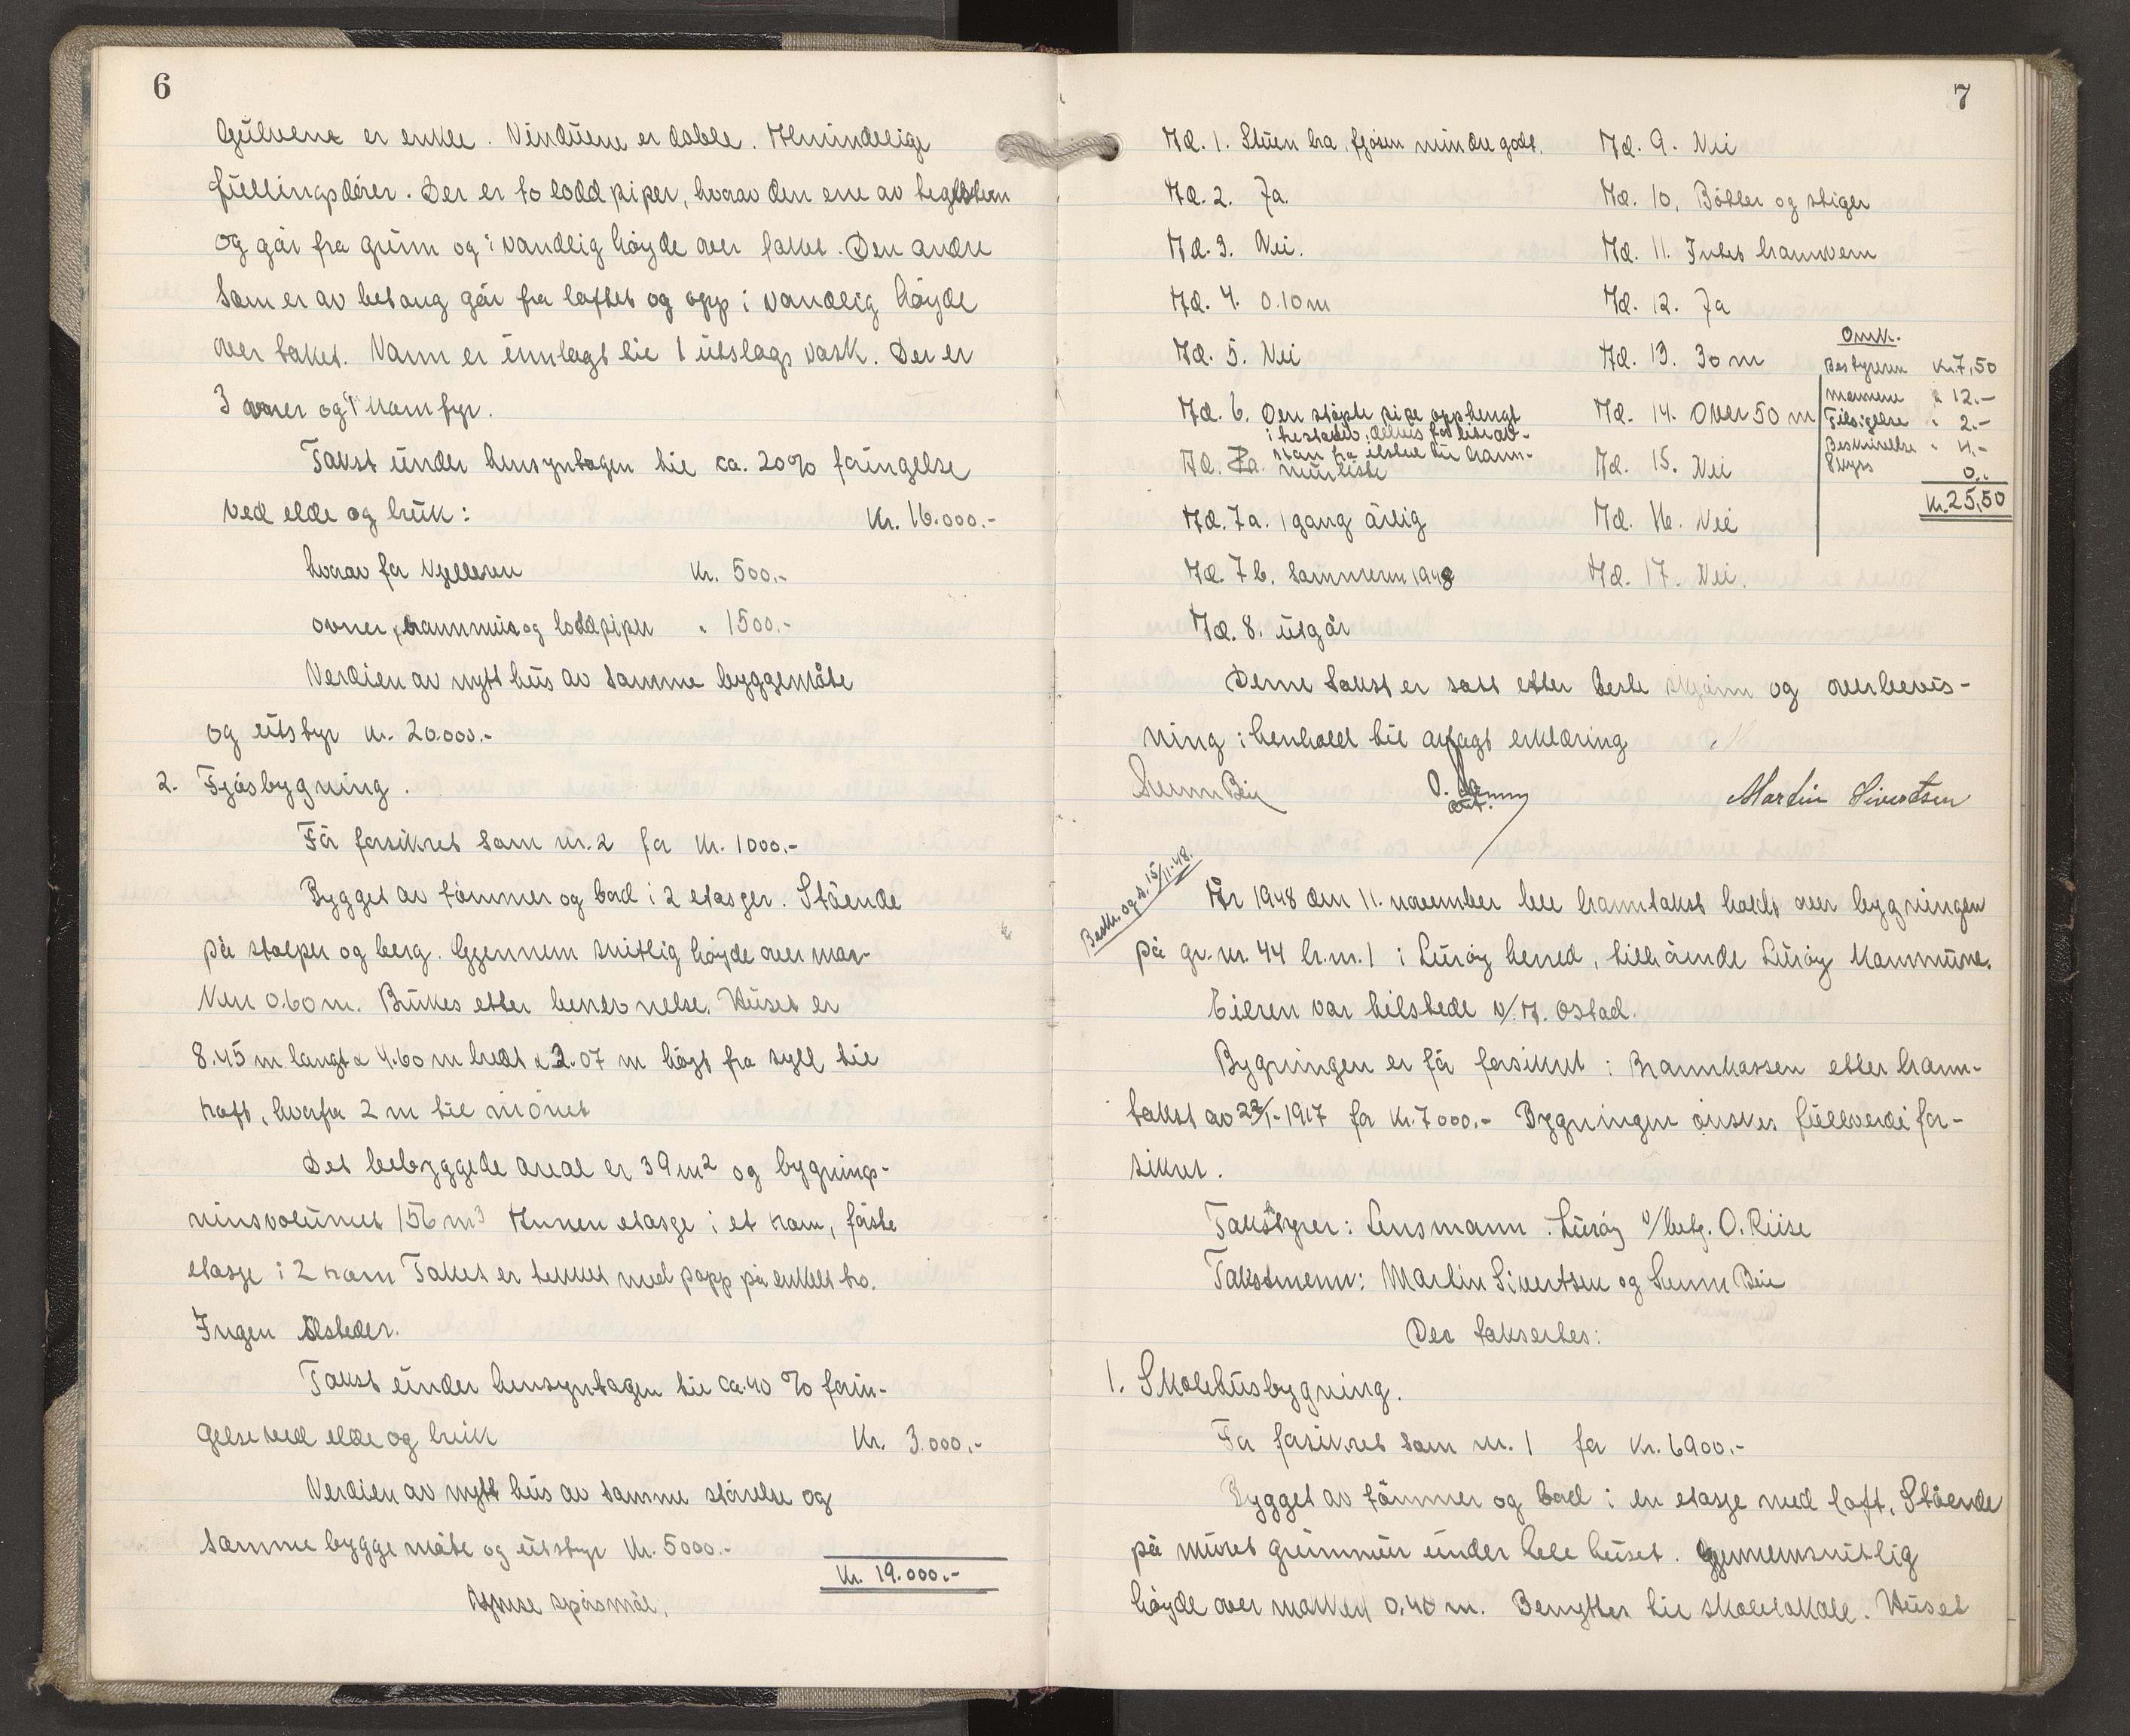 6
Gulvene er enkle. Vinduene er doble. Almindelige
fullingsdører. Der er to lodd piper, hvorav den ene av teglsten
og går fra grunn og i vandlig høyde over taket. Den andre
som er av betong går fra loftet og opp i vandlig høyde
over taket. Vann er innlagt til 1 utslags vask. Der er
3 ovner og 1 komfyr.
Takst under hensyntagen til ca. 20% foringelse
ved elde og bruk: Kr. 16.000.-
hvorav for kjelleren Kr. 500.-
ovner, brannmur og loddpiper " 1500.-
Verdien av nytt hus av samme byggemåte
og utstyr kr. 20.000.-
2. Fjøsbygning.
Før forsikret som nr. 2 for kr. 1000.-
Bygget av tømmer og bord i 2 etasjer. Stående
på stolper og berg. Gjennem snitlig høyde over mar-
ken 0.60 m. Brukes etter benevnelse. Huset er
8.45 m langt x 4.60 m bredt x 3.07 m høgt fra syll til
raft, hvorfra 2 m til mønet
Det bebyggede areal er 39 m2 og bygnings-
ninsvolumet 156 m3 Annen etasje i et rom, første
etasje i 2 rom Taket er tekket med papp på enkelt bo.
Ingen ildsteder.
Takst under hensyntagen til ca. 40 % forin-
gelse ved elde og bruk Kr. 3.000.-
Verdien av nytt hus av samme størrelse og
samme bygge måte og utstyr Kr. 5000.-
Kr. 19.000.-
Avgivse spørsmål.
7
Ad. 1. Stuen bra, fjøsen mindre godt. Ad. 9. Nei
Ad. 2. Ja. Ad. 10. Bøtter og stiger
Ad. 3. Nei. Ad. 11. Intet brannvern
Ad. 4. 0.10 m Ad. 12. Ja
Ad. 5. Nei Ad. 13. 30 m
Omk.
Bestyreren Kr. 7,50
mennene " 12.-
Tilsigelse " 2.-
Beskrivelse " 4.-
Skyss 0..
Kr. 25,50
Ad. 6. Den støpte pipe opphengt Ad. 14. Over 50 m
i trestativ, delvis for liten av-
stan fra ilsted til brann-
Ad. 7a. murliste Ad. 15. Nei
Ad. 7a. 1 gang årlig Ad. 16. Nei
Ad. 7 b. Sommeren 1948 Ad. 17. Nei.
Ad. 8. utgår
Denne takst er satt etter beste skjønn og overbevis-
ning i henhold til avlagt erklæring
Sverre Bie Martin Sivertsen
Beskr. og s. 15/11-48.
År 1948 den 11. november ble branntakst holdt over bygningen
på gr. nr. 44 br.nr. 1 i Lurøy herred, tilhørende Lurøy kommune.
Eieren var tilstede v/ A. Ostad.
Bygningen er før forsikret i Brannkassen etter brann-
takst av 22/1-1917 for kr. 7000.- Bygningen ønskes fullverdi for-
sikret.
Takstyrer: Lensmann i Lurøy v/betj. O. Riise
Takstmenn: Martin Sivertsen og Sverre Bie
Der takseres:
1. Skolehusbygning.
Før forsikret som nr. 1 for kr. 6900.-
Bygget av tømmer og bord i en etasje med loft. Stående
på muret grunnmur under hele huset. Gjennemsnitlig
høyde over marken 0.40 m. Benyttes til skolelokale. Huset